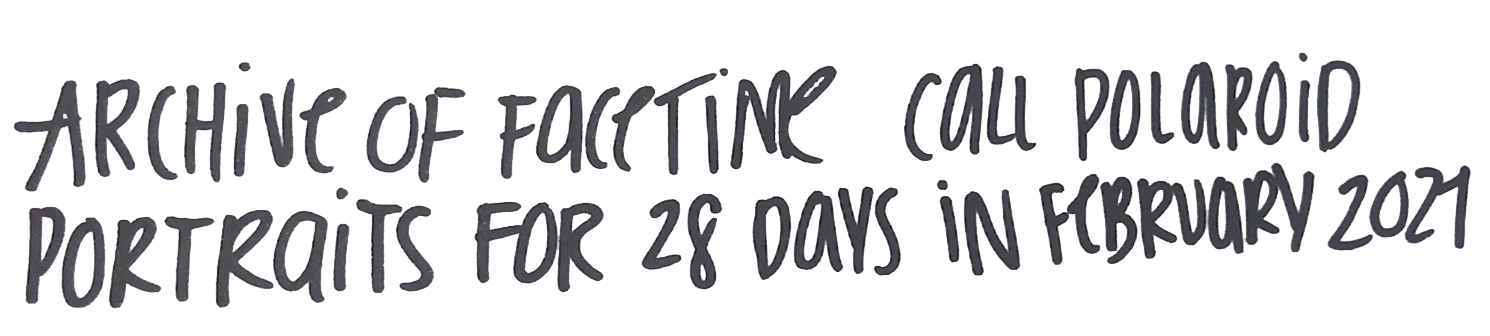 ARCHiVe OF FaceTiMe CaLL POLaROiD
PORTRaiTS FOR 28 DaYS iN FeBRUaRY 2021